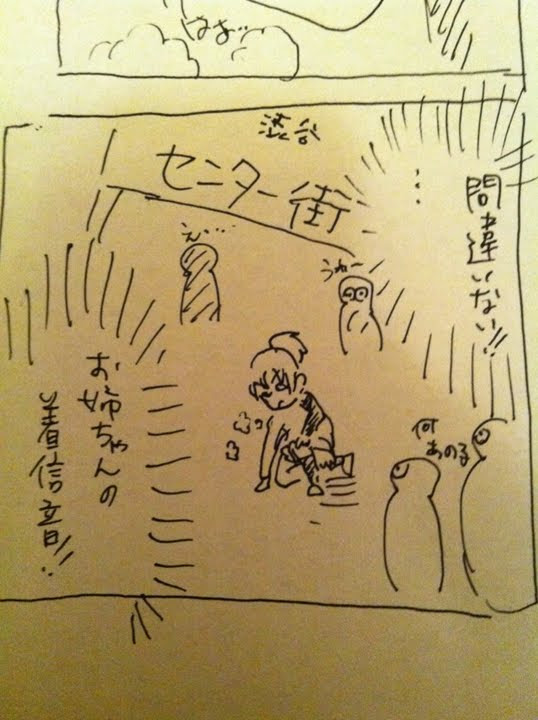 はぁ…
渋谷
センター街
間違いない!!
え…
うわー
何あの子
お姉ちゃんの
着信音!!